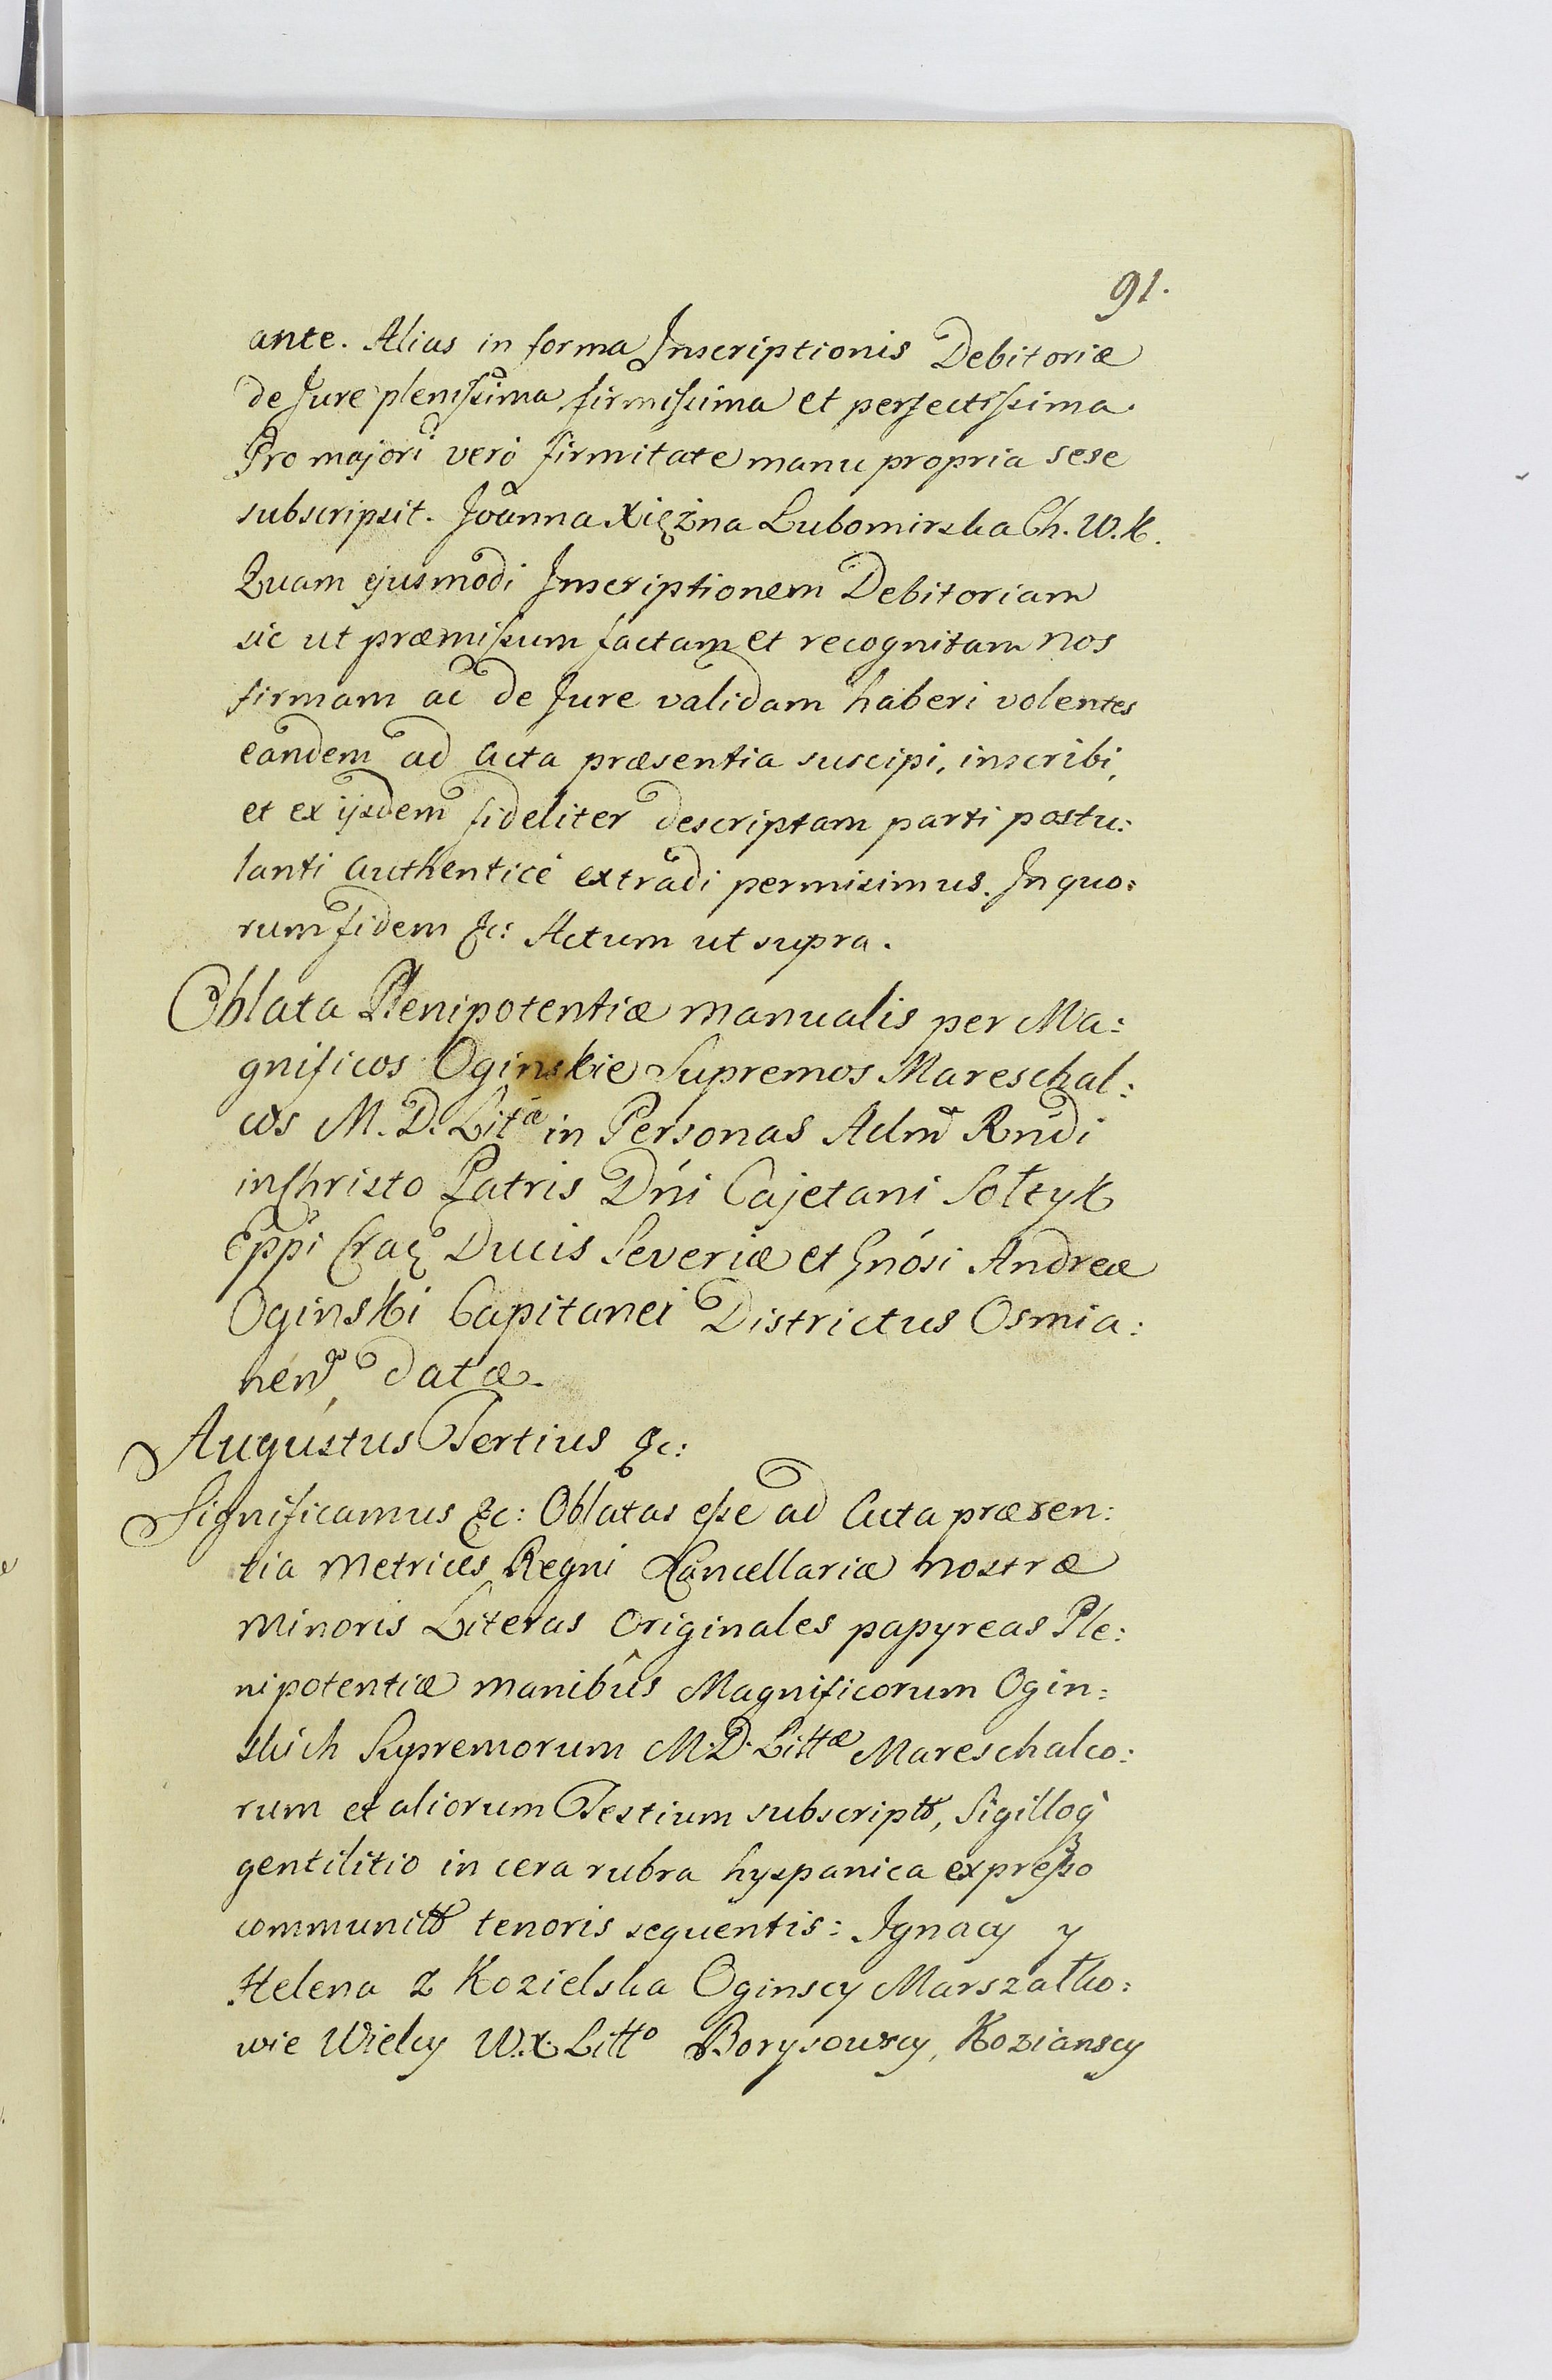 91.
ante. Alias in forma Inscriptionis Debitoriæ
de Jure plenissima firmissima et perfectissima.
Pro majori verò firmitate manu propria sese
subscripsit. Joanna Xiężna Lubomirska Ch. W. K.
Quam ejusmodi Inscriptionem Debitoriam
sic ut præmissum factam et recognitam nos
firmam ac de Jure validam haberi volentes
eandem ad Acta præsentia suscipi, inscribi,
et ex ijsdem fideliter descriptam parti postu:
lanti authenticè extradi permisimus. In quo:
rum fidem &c: Actum ut supra.
Oblata Plenipotentiæ manualis per Ma:
gnificos Oginskie Supremos Mareschal:
cos M. D. Litæ in Personas Adm̃ Rńdi
in Christo Patris Dńi Cajetani Sołtyk
Eppi Crac Ducis Severiæ et Gnósi Andreæ
Oginski Capitanei Districtus Osmia:
nen datæ.
Augustus Tertius &c:
Significamus &c: Oblatas esse ad Acta præsen:
tia Metrices Regni Cancellariæ nostræ
Minoris Literas Originales papyreas Ple:
nipotentiæ manibûs Magnificorum Ogin:
skich Supremorum M. D. Littæ Mareschalco:
rum et aliorum Testium subscriptas, Sigilloq̀
gentilitio in cera rubra hyspanica expresso
communitas tenoris sequentis: Ignacy y
Helena z Kozielska Oginscy Marszałko:
wie Wielcy W. X. Litto Borysowscy, Kozianscy